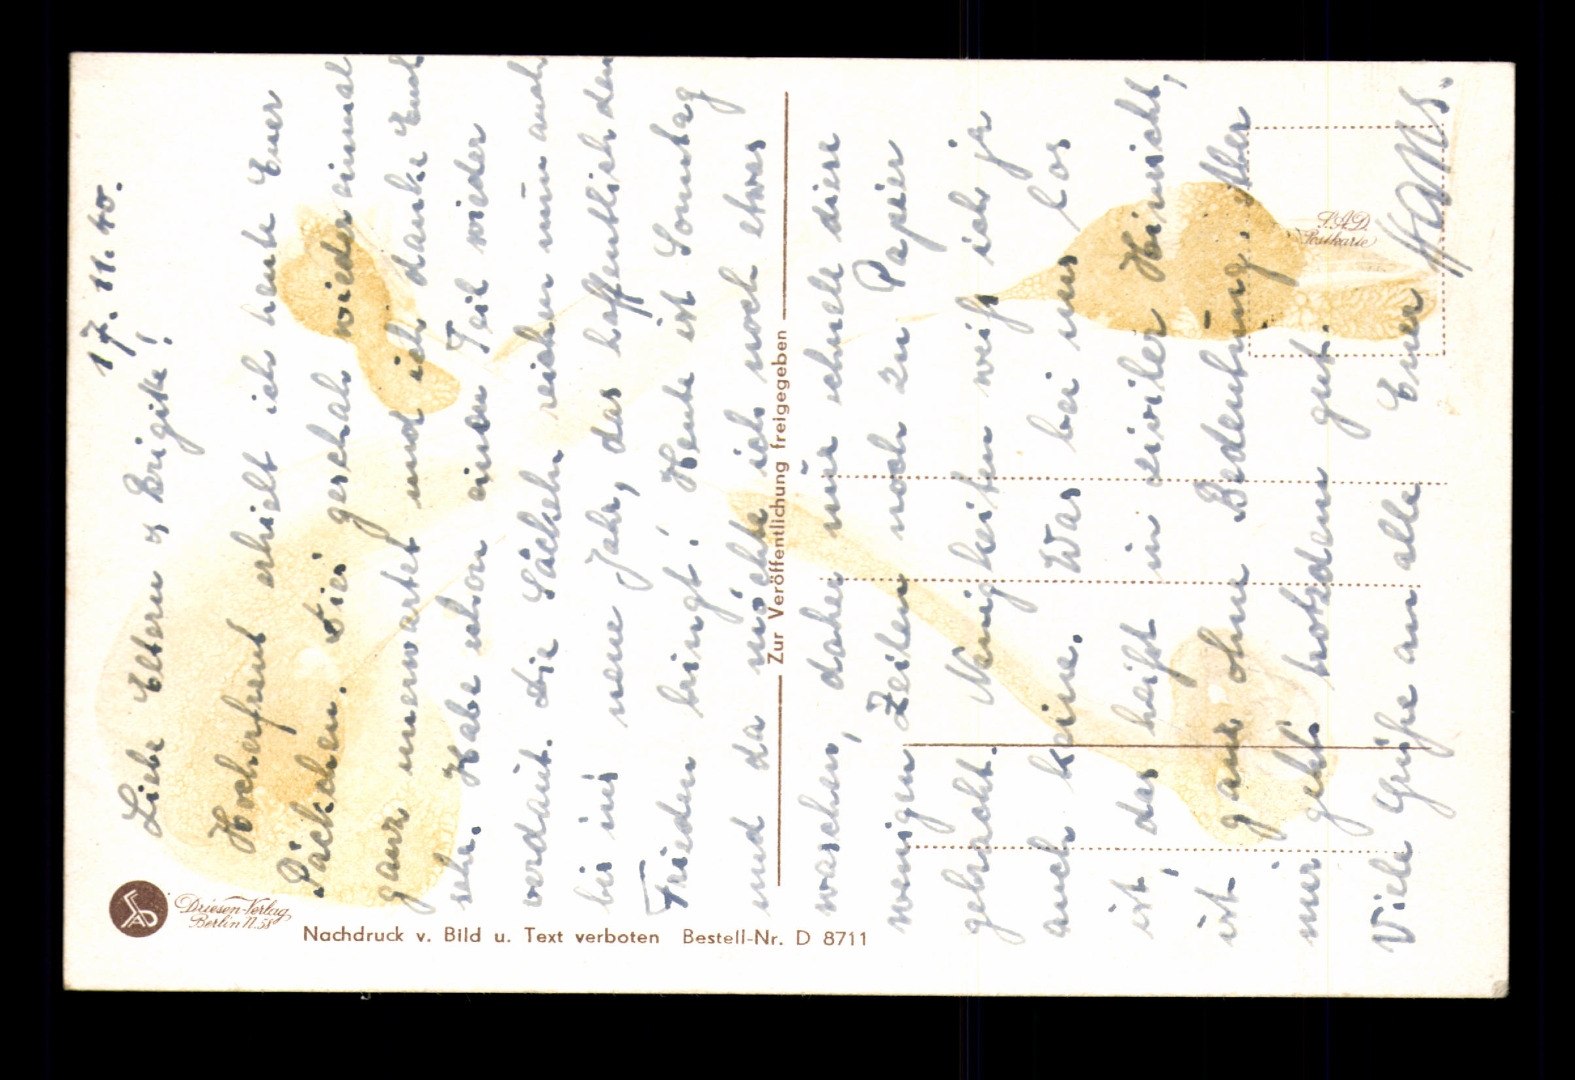 17. 11. 40.
Liebe Eltern u Brigitte!
Hocherfreut erhielt ich heute Euer
Päckchen. Dies geschah wieder einmal
ganz unerwartet und ich danke Euch
sehr. Habe schon einen Teil wieder
verdaut. Die Sachen reichen nun auch
bis ins neue Jahr, das hoffentlich den
Frieden bringt! Heute ist Sonntag
und da möchte ich noch etwas
waschen, daher nur schnell diese
wenigen Zeilen noch zu Papier
gebracht. Neuigkeiten weiß ich ja
auch keine. Was bei uns los
ist, das heißt in ziviler Hinsicht,
ist ganz ohne Bedeutung.
mir geht's trotzdem gut.
Viele Grüße an alle Euer Hans.
Zur Veröffentlichung freigegeben
S.A.D.
Postkarte
Driesen-Verlag
Berlin N.58
Nachdruck v. Bild u. Text verboten Bestell-Nr. D 8711